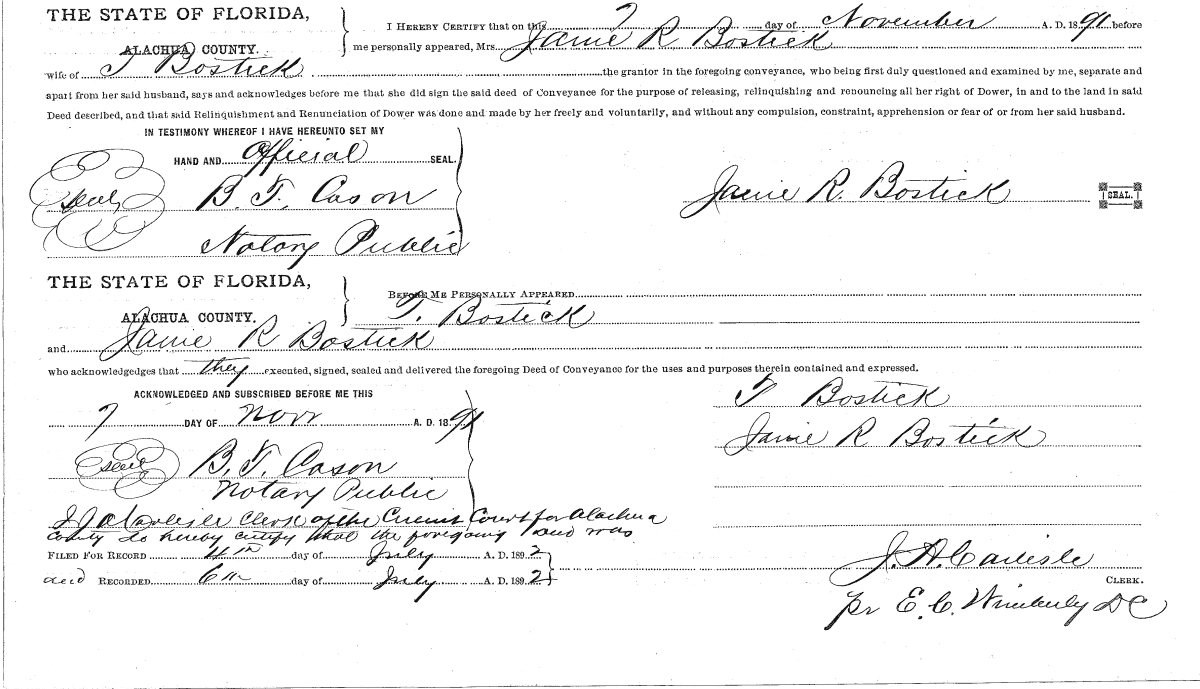 THE STATE OF FLORIDA,
ALACHUA COUNTY.
I HEREBY CERTIFY that on this 7 day of November A. D. 1891 before
me personally appeared, Mrs. Janie R Bostick
wife of T Bostick the grantor in the foregoing conveyance, who being first duly questioned and examined by me, separate and
apart from her said husband, says and acknowledges before me that she did sign the said deed of Conveyance for the purpose of releasing, relinquishing and renouncing all her right of Dower, in and to the land in said
Deed described, and that said Relinquishment and Renunciation of Dower was done and made by her freely and voluntarily, and without any compulsion, constraint, apprehension or fear of or from her said husband.
IN TESTIMONY WHEREOF I HAVE HEREUNTO SET MY
HAND AND Official SEAL.
seal B. T. Cason
Notary Public
Janie R. Bostick SEAL.
THE STATE OF FLORIDA,
ALACHUA COUNTY.
BEFORE ME PERSONALLY APPEARED
T. Bostick
and Janie R Bostick
who acknowledgedges that they executed, signed, sealed and delivered the foregoing Deed of Conveyance for the uses and purposes therein contained and expressed.
ACKNOWLEDGED AND SUBSCRIBED BEFORE ME THIS
7 DAY OF Novr A. D. 1891
seal B. T. Cason
Notary Public
T Bostick
Janie R Bostick
I J A Carlisle Clerk of the Circuit Court for Alachua
County do hereby certify that the foregoing deed was
FILED FOR RECORD 4th day of July A. D. 1892
and RECORDED 6th day of July A. D. 1892
J. A. Carlisle
CLERK.
pr E. C. Wimberly DC